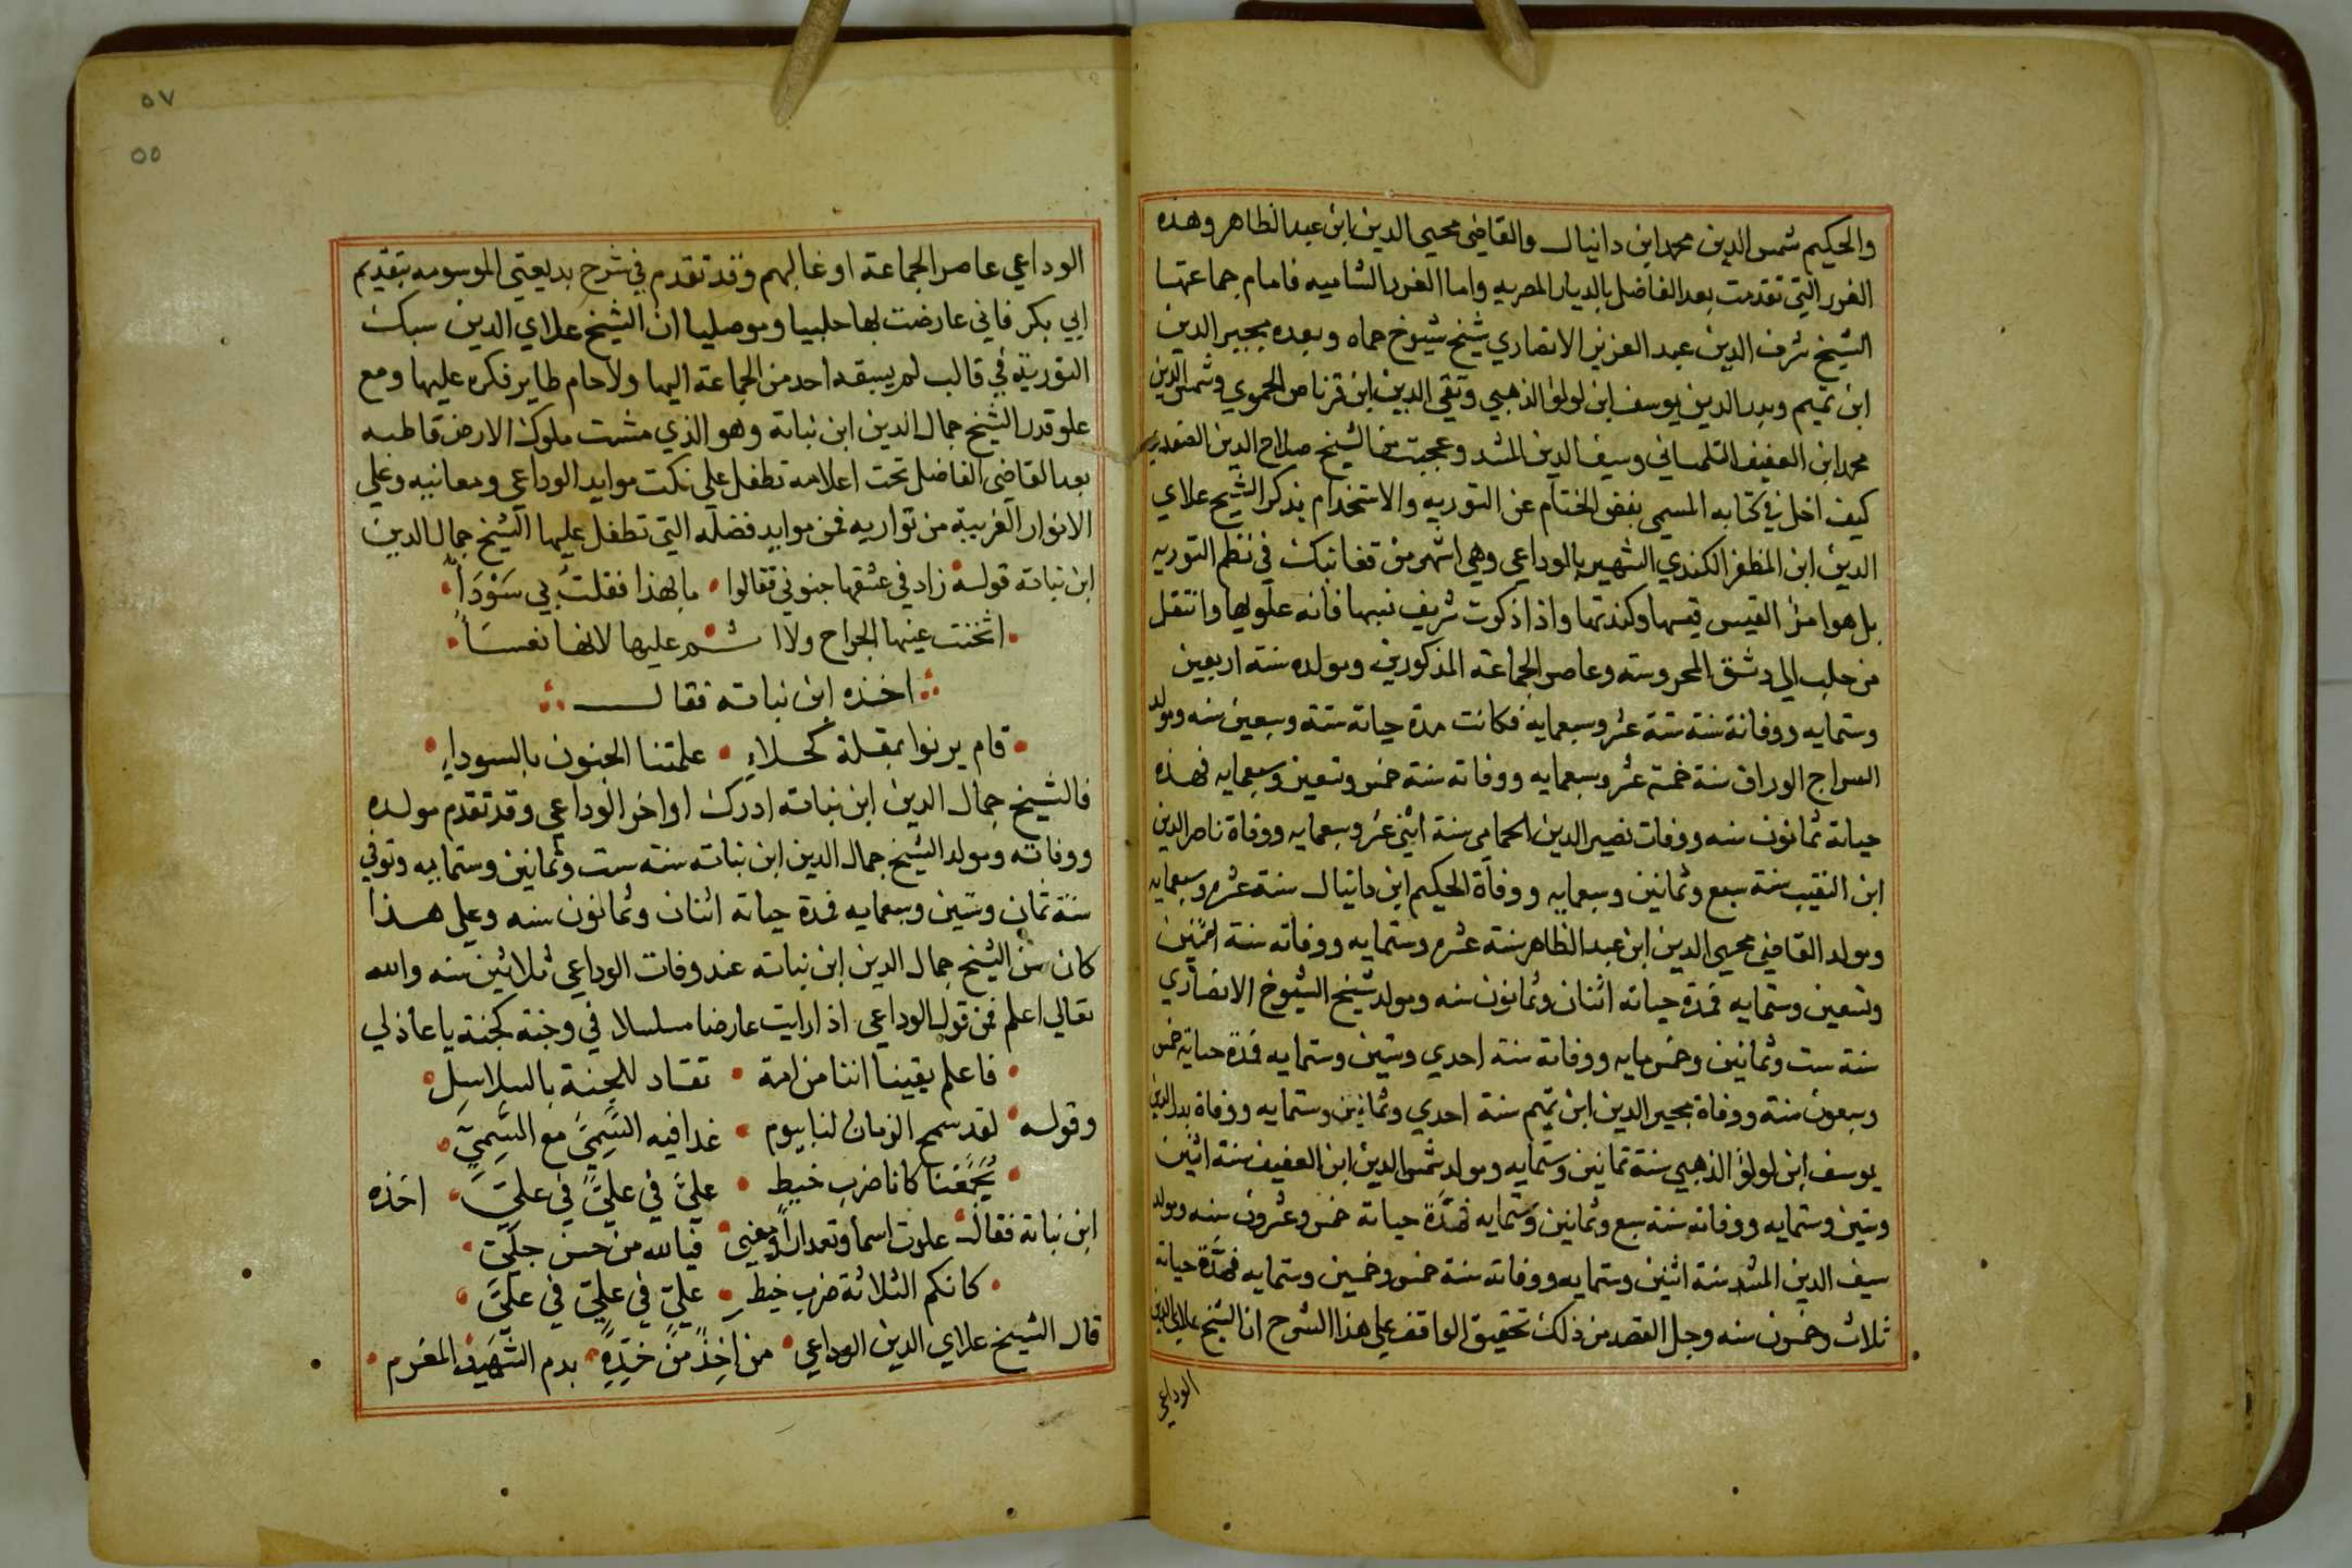 والحكيم شمس الدين محمد ابن دانيال والقاضي محيي الدين ابن عبد الظاهر وهذه
الغرر التي تقدمت بعد الفاضل بالديار المصريه واما الغرر الشاميه فامام جماعتها
الشيخ شرف الدين عبد العزيز الانصاري شيخ شيوخ حماه وبعده مجير الدين
ابن تميم وبدر الدين يوسف ابن لولو الذهبي وتقي الدين ابن قرناص الحموي وشمس الدين
محمد ابن العفيف التلمساني وسيف الدين المشد وعجبت من الشيخ صلاح الدين الصفدي
كيف اخل في كتابه المسمى بفض الختام عن التوريه والاستخدام بذكر الشيخ علاي
الدين ابن المظفر الكندي الشهير بالوداعي وهي اشهر من قفا نبك في نظم التوريه
بل هو امرئ القيس قيسها وكندتها واذا ذكرت شريف نسبها فانه علويها وانتقل
من حلب الي دمشق المحروسة وعاصر الجماعة المذكورين ومولده سنة اربعين
وستمايه ووفاته سنة ستة عشر وسبعمايه فكانت مدة حياته ستة وسبعين سنه ومولد
السراج الوراق سنة خمسة عشر وسبعمايه ووفاته سنة خمس وتسعين وسبعمايه فهذه
حياته ثمانون سنه ووفات نصير الدين الحمامي سنة اثني عشر وسبعمايه ووفاة ناصر الدين
ابن النقيب سنة سبع وثمانين وسبعمايه ووفاة الحكيم ابن دانيال سنة عشر وسبعمايه
ومولد القاضي محيي الدين ابن عبد الظاهر سنة عشر وستمايه ووفاته سنة اثنين
وتسعين وستمايه فمدة حياته اثنان وثمانون سنه ومولد شيخ الشيوخ الانصاري
سنة ست وثمانين وخمس مايه ووفاته سنة احدي وستين وستمايه فمدة حياته خمس
وسبعون سنة ووفاة مجير الدين ابن تميم سنة احدي وثمانين وستمايه ووفاة بدر الدين
يوسف ابن لولؤ الذهبي سنة ثمانين وستمايه ومولد شمس الدين ابن العفيف سنة اثنين
وستين وستمايه ووفاته سنة سبع وثمانين وستمايه فمدة حياته خمس وعشرون سنه ومولد
سيف الدين المشد سنة اثنين وستمايه ووفاته سنة خمس وخمسين وستمايه فمدة حياته
ثلاث وخمسون سنه وجل القصد من ذلك تحقيق الواقف علي هذا الشرح ان الشيخ علاي الدين
الوداعي
٥٧
٥٥
الوداعي عاصر الجماعة او غالبهم وقد تقدم في شرح بديعتي الموسومه بتقديم
ابي بكر فاني عارضت بها حلبيا وموصليا ان الشيخ علاي الدين سبك
التورية في قالب لم يسبقه احد من الجماعة اليها ولا حام طاير فكره عليها ومع
علو قدر الشيخ جمال الدين ابن نباتة وهو الذي مشت ملوك الارض قاطبه
بعد القاضي الفاضل تحت اعلامه تطفل علي نكت موايد الوداعي ومعانيه وعلي
الانوار الغريبة من تواريه فمن موايد فضله التي تطفل عليها الشيخ جمال الدين
ابن نباته قوله زاد في عشقها جنوني فقالوا • ما بهذا فقلت بي سَوْدَاً •
• اثخنت عينها الجراح ولا ا ثم عليها لانها نعسا •
اخذه ابن نباته فقال
• قام يرنوا بمقلة كحلاءِ • علمتنا الجنون بالسوداءِ •
فالشيخ جمال الدين ابن نباته ادرك اواخر الوداعي وقد تقدم مولده
ووفاته ومولد الشيخ جمال الدين ابن نباته سنة ست وثمانين وستمايه وتوفي
سنة ثمان وستين وسبعمايه فمدة حياته اثنان وثمانون سنه وعلي هذا
كان سن الشيخ جمال الدين ابن نباته عند وفات الوداعي ثلاثين سنه والله
تعالي اعلم فمن قول الوداعي اذا رايت عارضا مسلسلا في وجنة كجنة يا عاذلي
• فاعلم يقينا اننا من امة • تقاد للجنة بالسلاسل •
وقوله • لقد سمح الزمان لنا بيوم • غدا فيه السَّمِيّ مع السَّمِيّ •
• يُجَمِّعنا كانا ضرب خيط • عليّ في عليّ في عليّ • اخذه
ابن نباتة فقال علوت اسما وتعداراً ومغني • فيالله من حسن جليّ •
• كانكم الثلاثة ضرب خيط • عليّ في عليّ في عليّ •
قال الشيخ علاي الدين الوداعي • من اخِذٌ من خدِّهِ • بدم الشهيد المغرم •